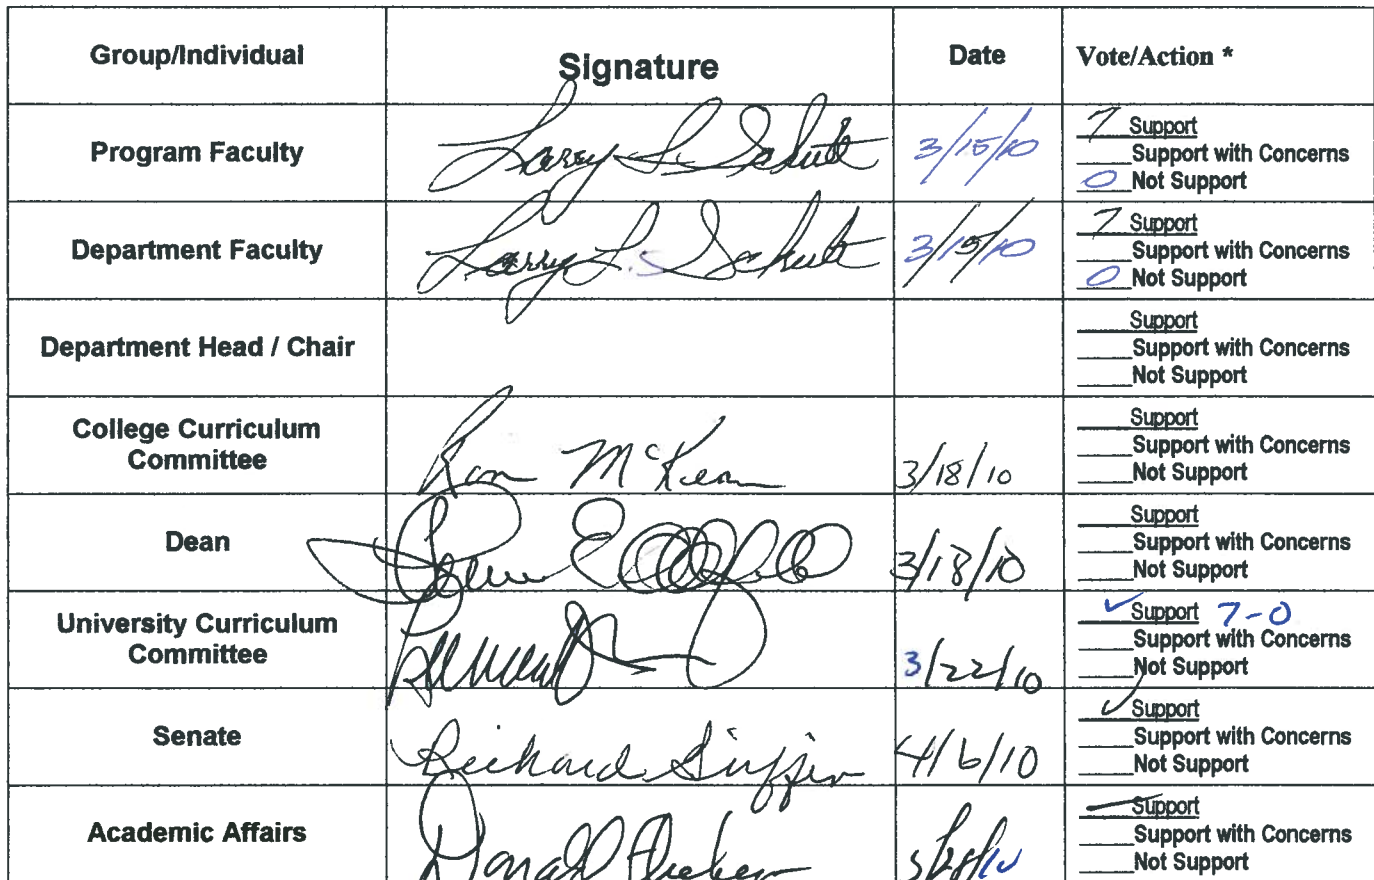 Group/Individual Signature Date Vote/Action *
Program Faculty Larry L. Schult 3/15/10 7 Support
Support with Concerns
0 Not Support
Department Faculty Larry L. Schult 3/15/10 7 Support
Support with Concerns
0 Not Support
Department Head / Chair Support
Support with Concerns
Not Support
College Curriculum Committee Ron McKean 3/18/10 Support
Support with Concerns
Not Support
Dean 3/18/10 Support
Support with Concerns
Not Support
University Curriculum Committee 3/22/10 ✓ Support 7-0
Support with Concerns
Not Support
Senate Richard Griffin 4/6/10 ✓ Support
Support with Concerns
Not Support
Academic Affairs Donald Support
Support with Concerns
Not Support